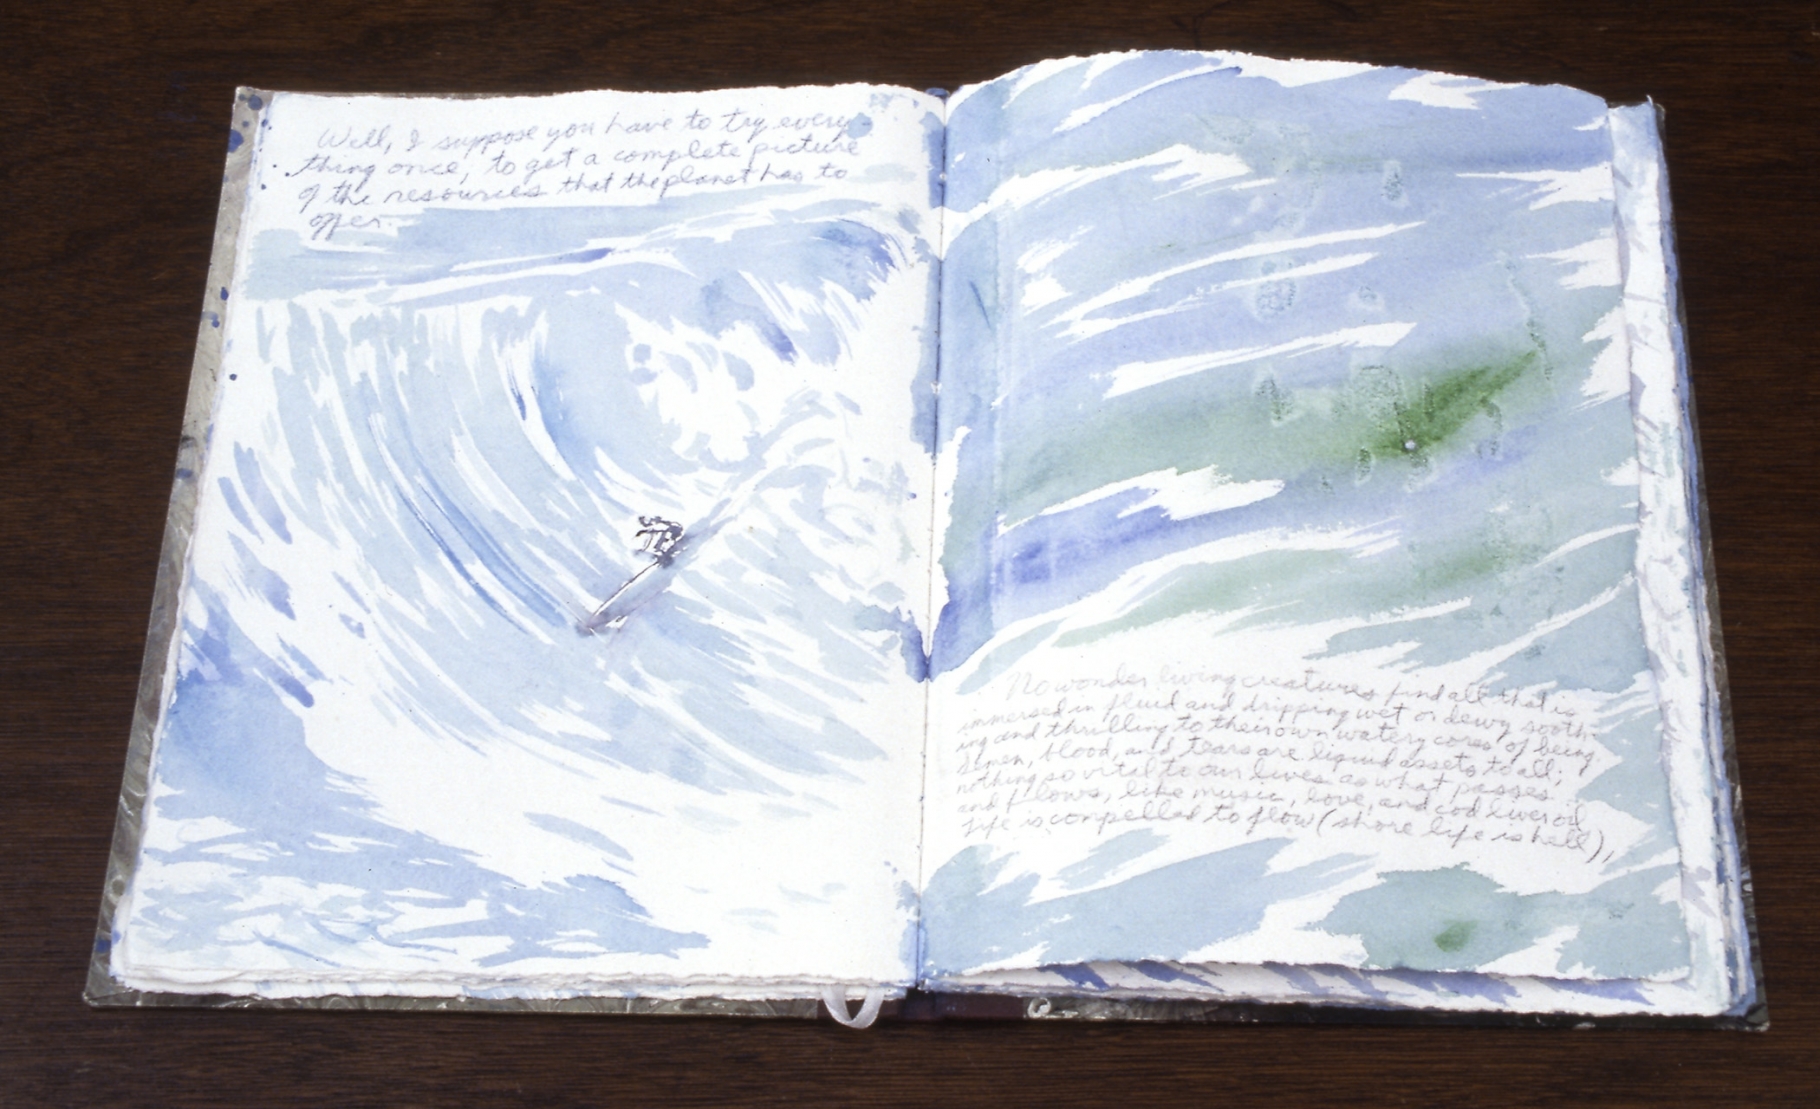 Well, I suppose you have to try every-
thing once, to get a complete picture
of the resources that the planet has to
offer.
No wonder living creatures find all that is
immersed in fluid and dripping wet or dewy sooth-
ing and thrilling to their own watery cores of being.
Semen, blood, and tears are liquid assets to all;
nothing so vital to our lives as what passes
and flows, like music, love, and cod liver oil.
Life is compelled to flow (shore life is hell),